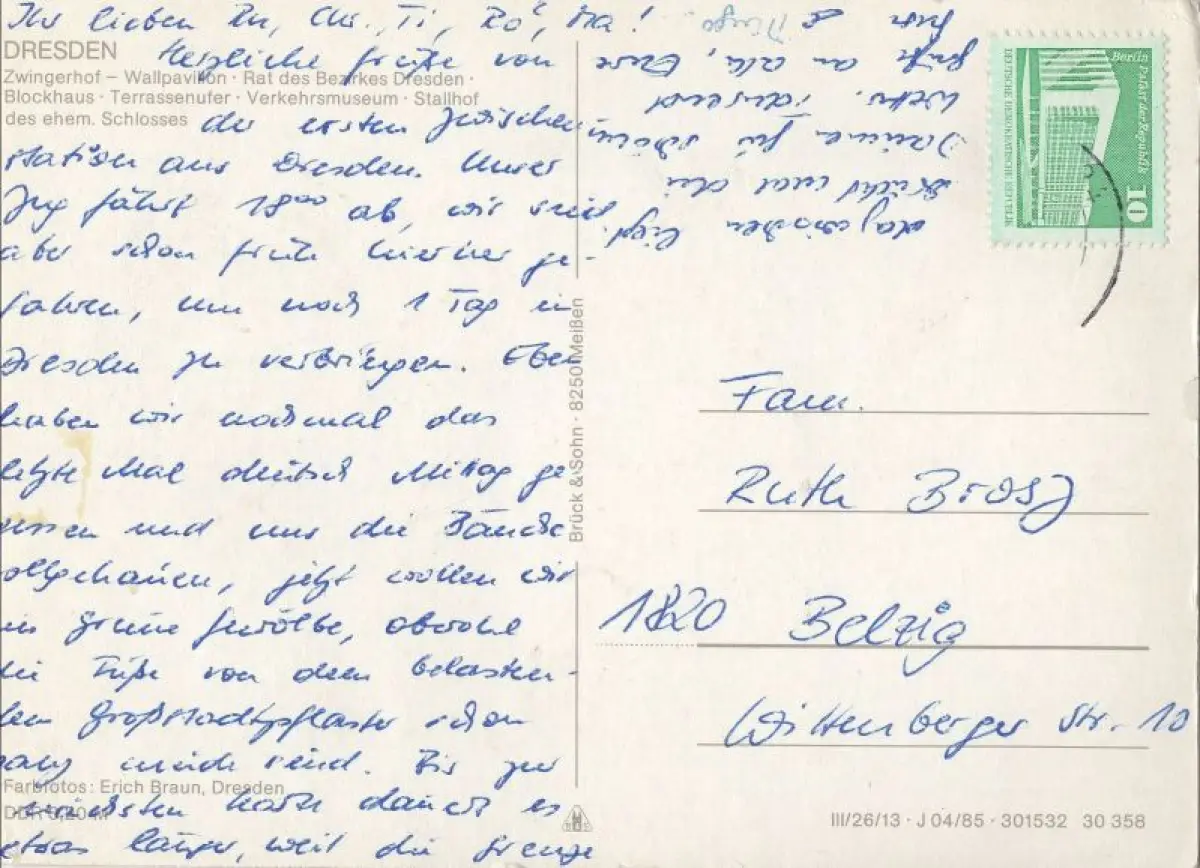 Ihr lieben Ru, Chr., Ti, Ro, Ma!
DRESDEN
Herzliche Grüße von
Zwingerhof – Wallpavillon · Rat des Bezirkes Dresden ·
Blockhaus · Terrassenufer · Verkehrsmuseum · Stallhof
des ehem. Schlosses
der ersten Zwischen
station aus Dresden. Unser
Zug fährt 18⁰⁰ ab, wir sind
aber schon früh hierher ge-
fahren, um noch 1 Tag in
Dresden zu verbringen. Eben
haben wir nochmal das
letzte Mal deutsch Mittag ge
gessen und uns die Bäuche
vollgehauen, jetzt wollen wir
ins Grüne Gewölbe, obwohl
die Füße von dem belasten-
den Großstadtpflaster schon
ganz müde sind. Bis zur
nächsten Karte dauert es
etwas länger, weil die Grenze
Farbfotos: Erich Braun, Dresden
DDR 0,20 M
dazwischen liegt.
Drückt mal die
Daumen für schönes
Wetter. Tausend
Grüße an alle, Eure
Brück & Sohn · 8250 Meißen
Berlin Palast der Republik
DEUTSCHE DEMOKRATISCHE REPUBLIK
10
Fam.
Ruth Brosz
1820 Belzig
Wittenberger Str. 10
III/26/13 · J 04/85 · 301532 30 358